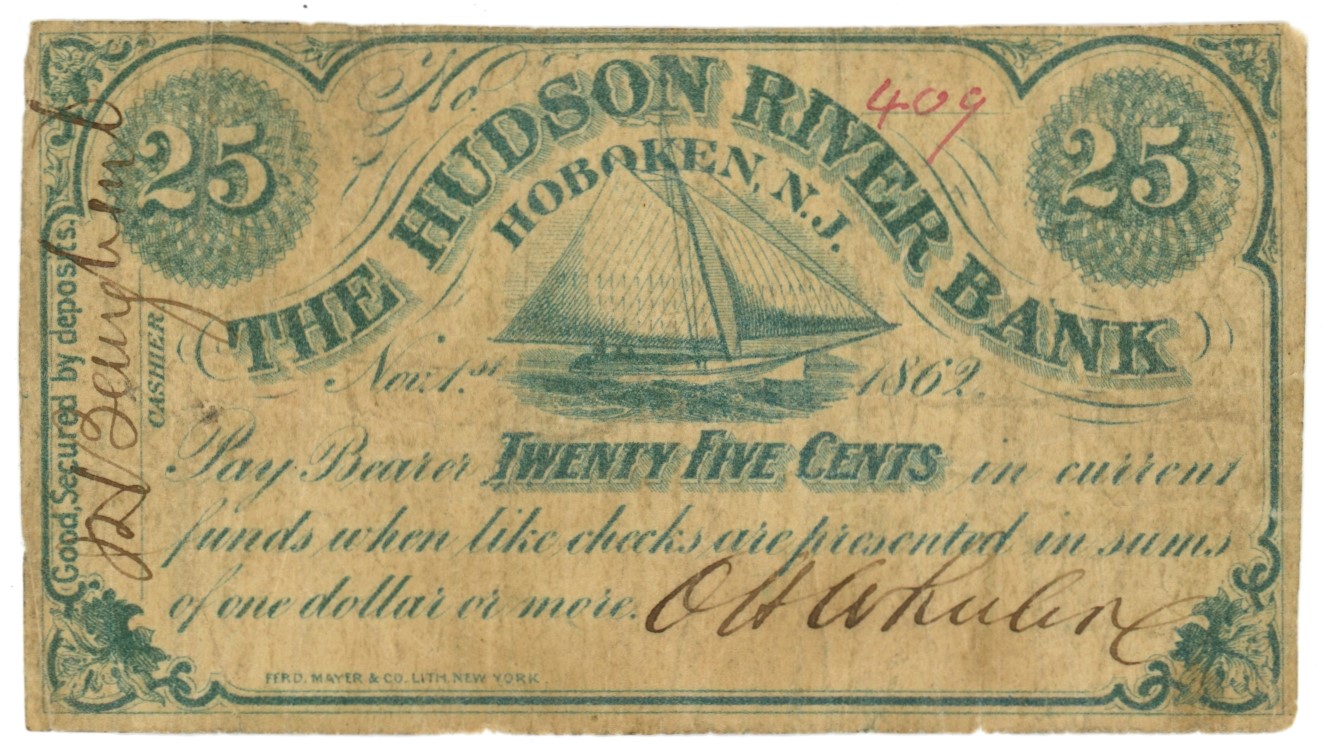 No. 409
25
25
THE HUDSON RIVER BANK
HOBOKEN, N.J.
Nov. 1.st 1862.
Pay Bearer TWENTY FIVE CENTS in current
funds when like checks are presented in sums
of one dollar or more. O H Wheeler
FERD. MAYER & CO. LITH. NEW YORK.
(Good, Secured by deposits.)
CASHIER